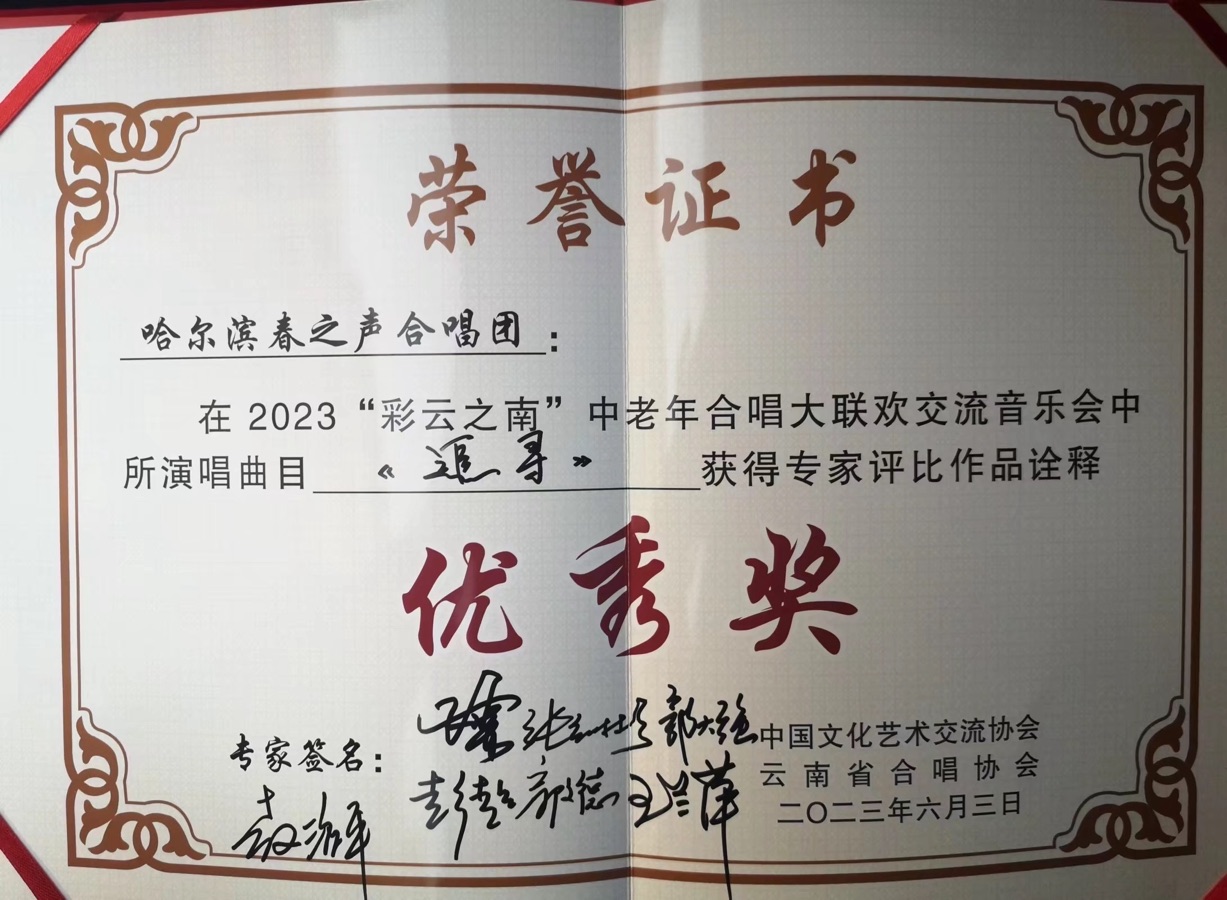 荣誉证书
哈尔滨春之声合唱团：
在 2023 “彩云之南” 中老年合唱大联欢交流音乐会中
所演唱曲目《追寻》获得专家评比作品诠释
优秀奖
专家签名：
中国文化艺术交流协会
云南省合唱协会
二〇二三年六月三日